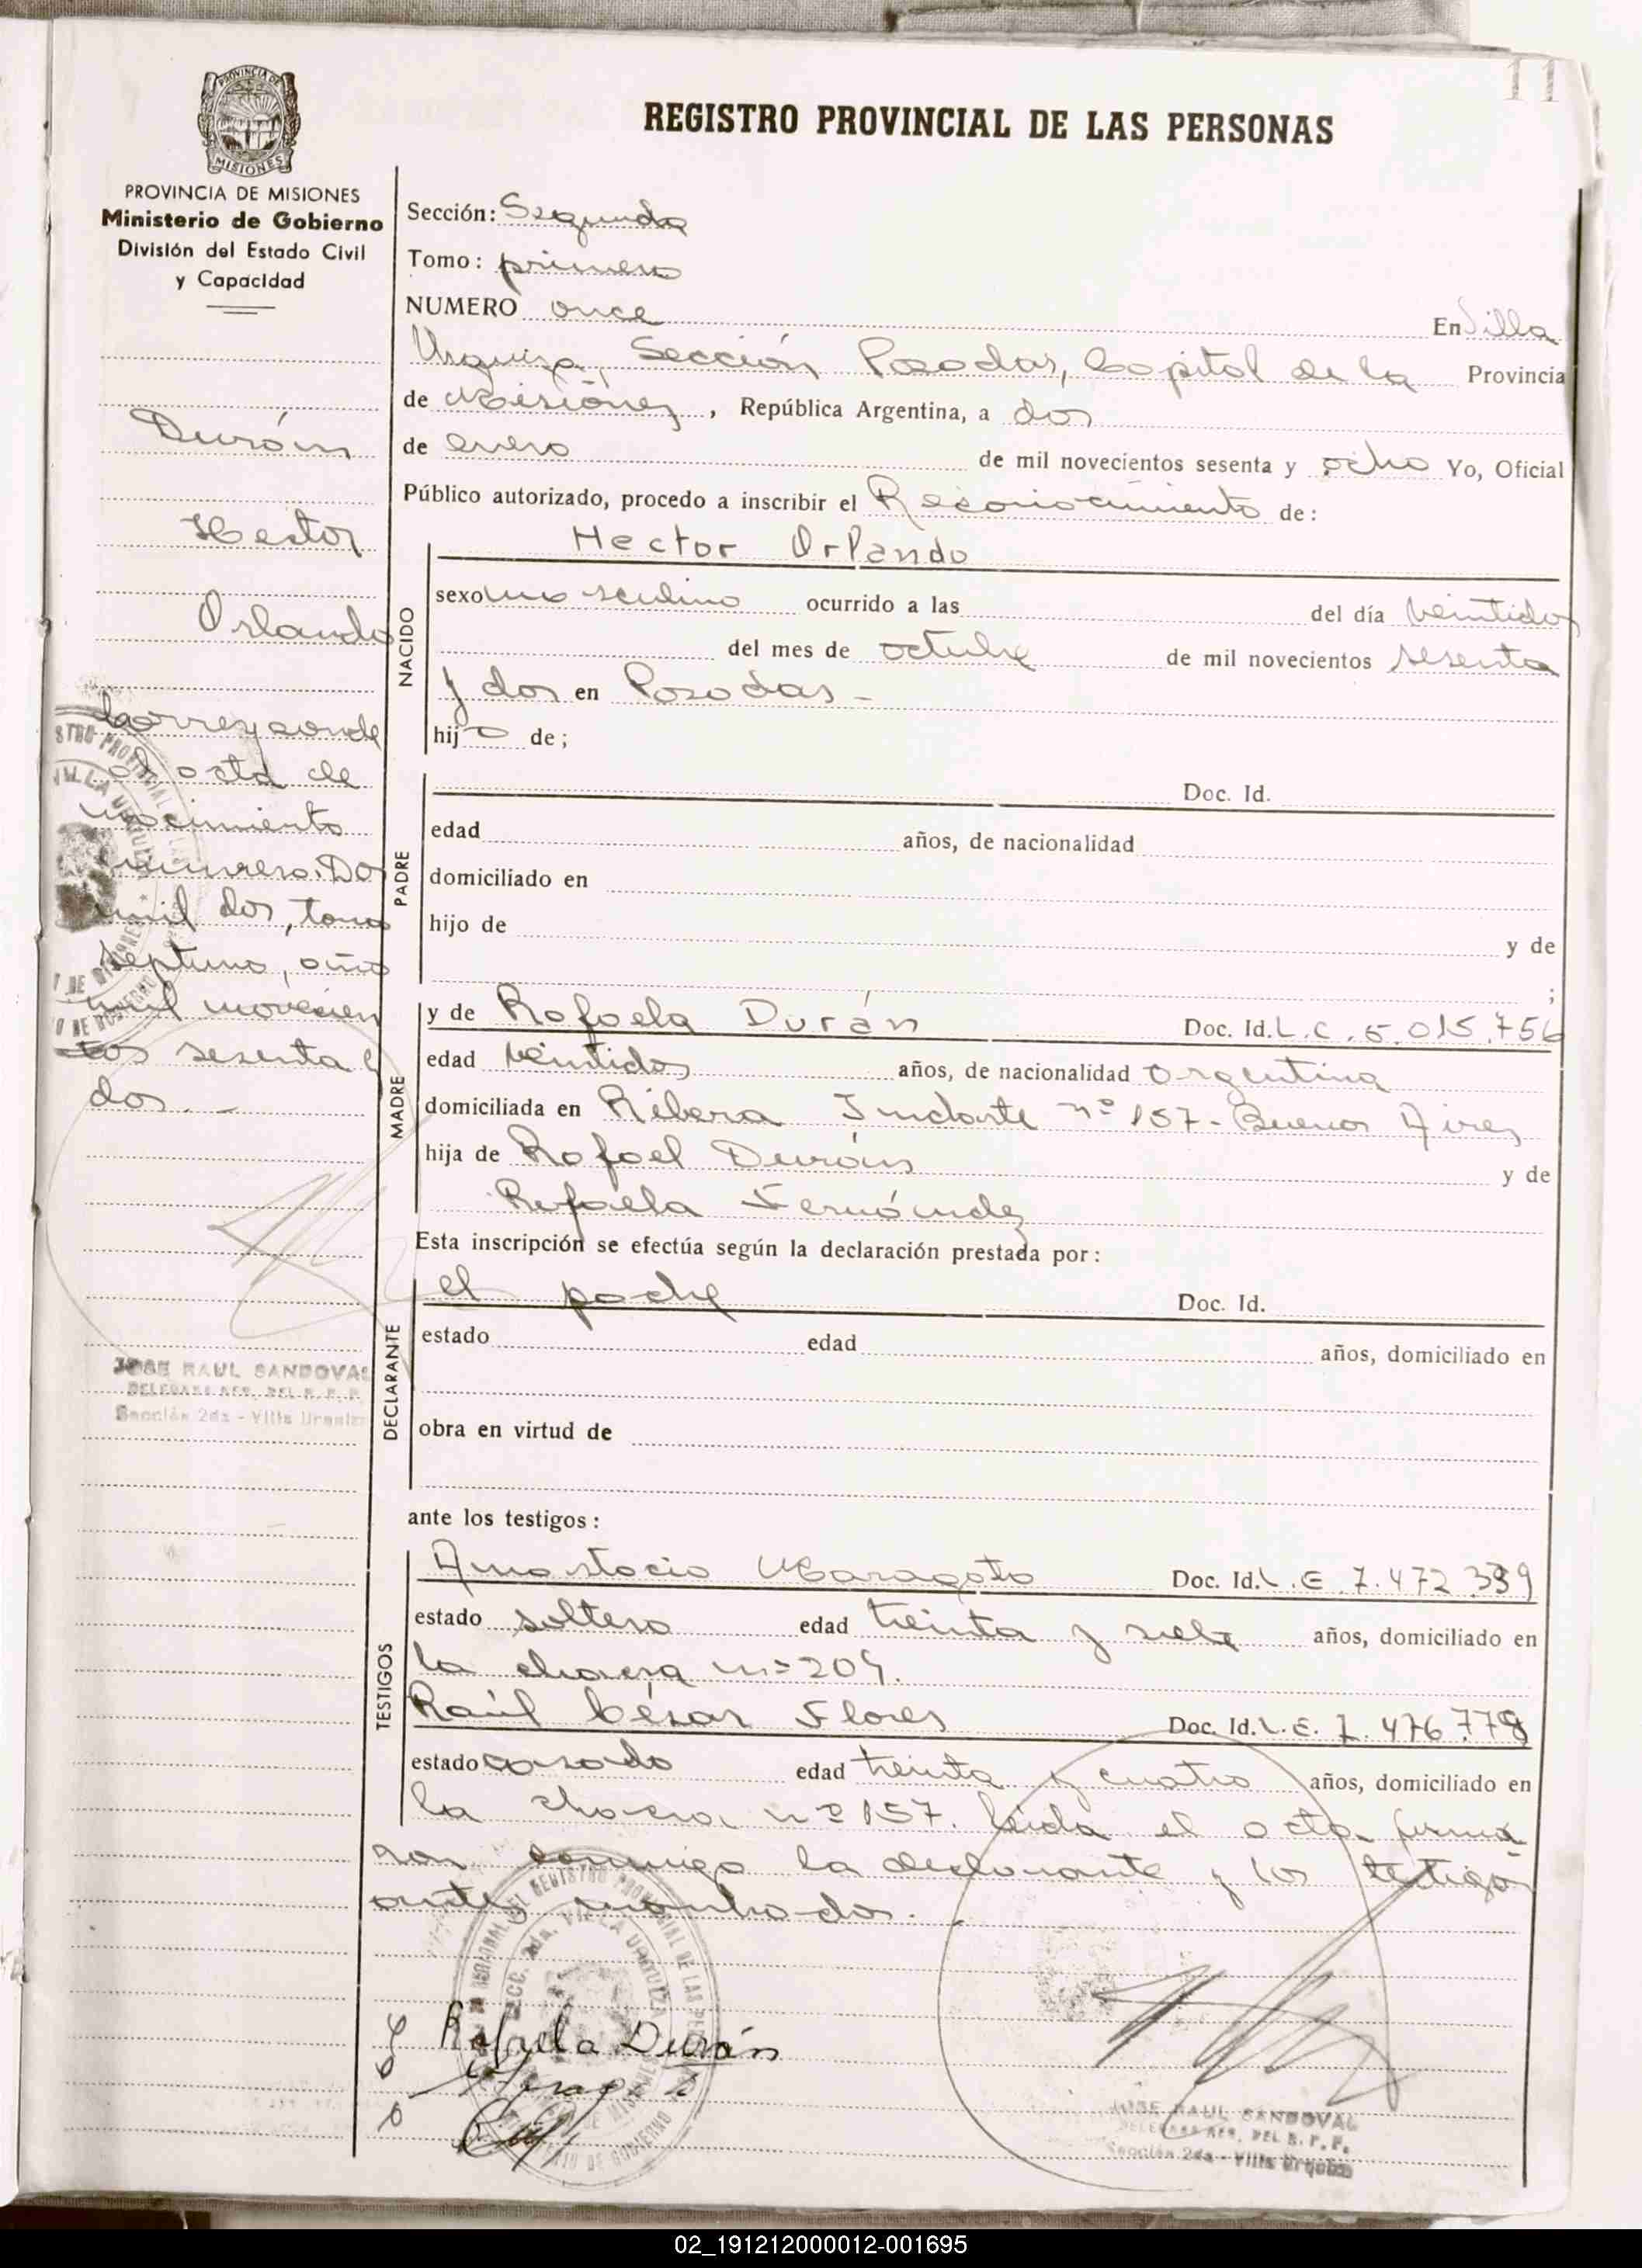 11
PROVINCIA DE
MISIONES
REGISTRO PROVINCIAL DE LAS PERSONAS
PROVINCIA DE MISIONES
Ministerio de Gobierno
División del Estado Civil
y Capacidad
Sección: Segunda
Tomo: primero
NUMERO once En Villa
Urquiza, Sección Posadas, Capital de la Provincia
de Misiones, República Argentina, a dos
de enero de mil novecientos sesenta y ocho Yo, Oficial
Público autorizado, procedo a inscribir el Reconocimiento de:
Durán
Hector
Orlando
Corresponde
al acta de
nacimiento
número Dos
mil dos, tomo
septimo, año
mil novecien
tos sesenta y
dos. -
JOSE RAUL SANDOVAL
Sección 2da - Villa Urquiza
NACIDO
Hector Orlando
sexo masculino ocurrido a las del día veintidos
del mes de octubre de mil novecientos sesenta
y dos en Posadas -
hijo de;
PADRE
Doc. Id.
edad años, de nacionalidad
domiciliado en
hijo de y de
;
MADRE
y de Rafaela Durán Doc. Id. L.C. 5.015.756
edad veintidos años, de nacionalidad argentina
domiciliada en Ribera Indarte nº 157 - Buenos Aires
hija de Rafael Durán y de
Rafaela Fernández
Esta inscripción se efectúa según la declaración prestada por:
DECLARANTE
el Doc. Id.
estado edad años, domiciliado en
obra en virtud de
ante los testigos:
TESTIGOS
Anastacio Maragato Doc. Id. L.E 7.472.339
estado soltero edad treinta y siete años, domiciliado en
la chacra nº 204.
Raúl César Flores Doc. Id. L.E. 7.476.778
estado casado edad treinta y cuatro años, domiciliado en
la chacra nº 157. Leida el acta firma
ron conmigo la declarante y los testigos
antes nombrados. -
Rafaela Durán
JOSE RAUL SANDOVAL
Sección 2da - Villa Urquiza
02_191212000012-001695